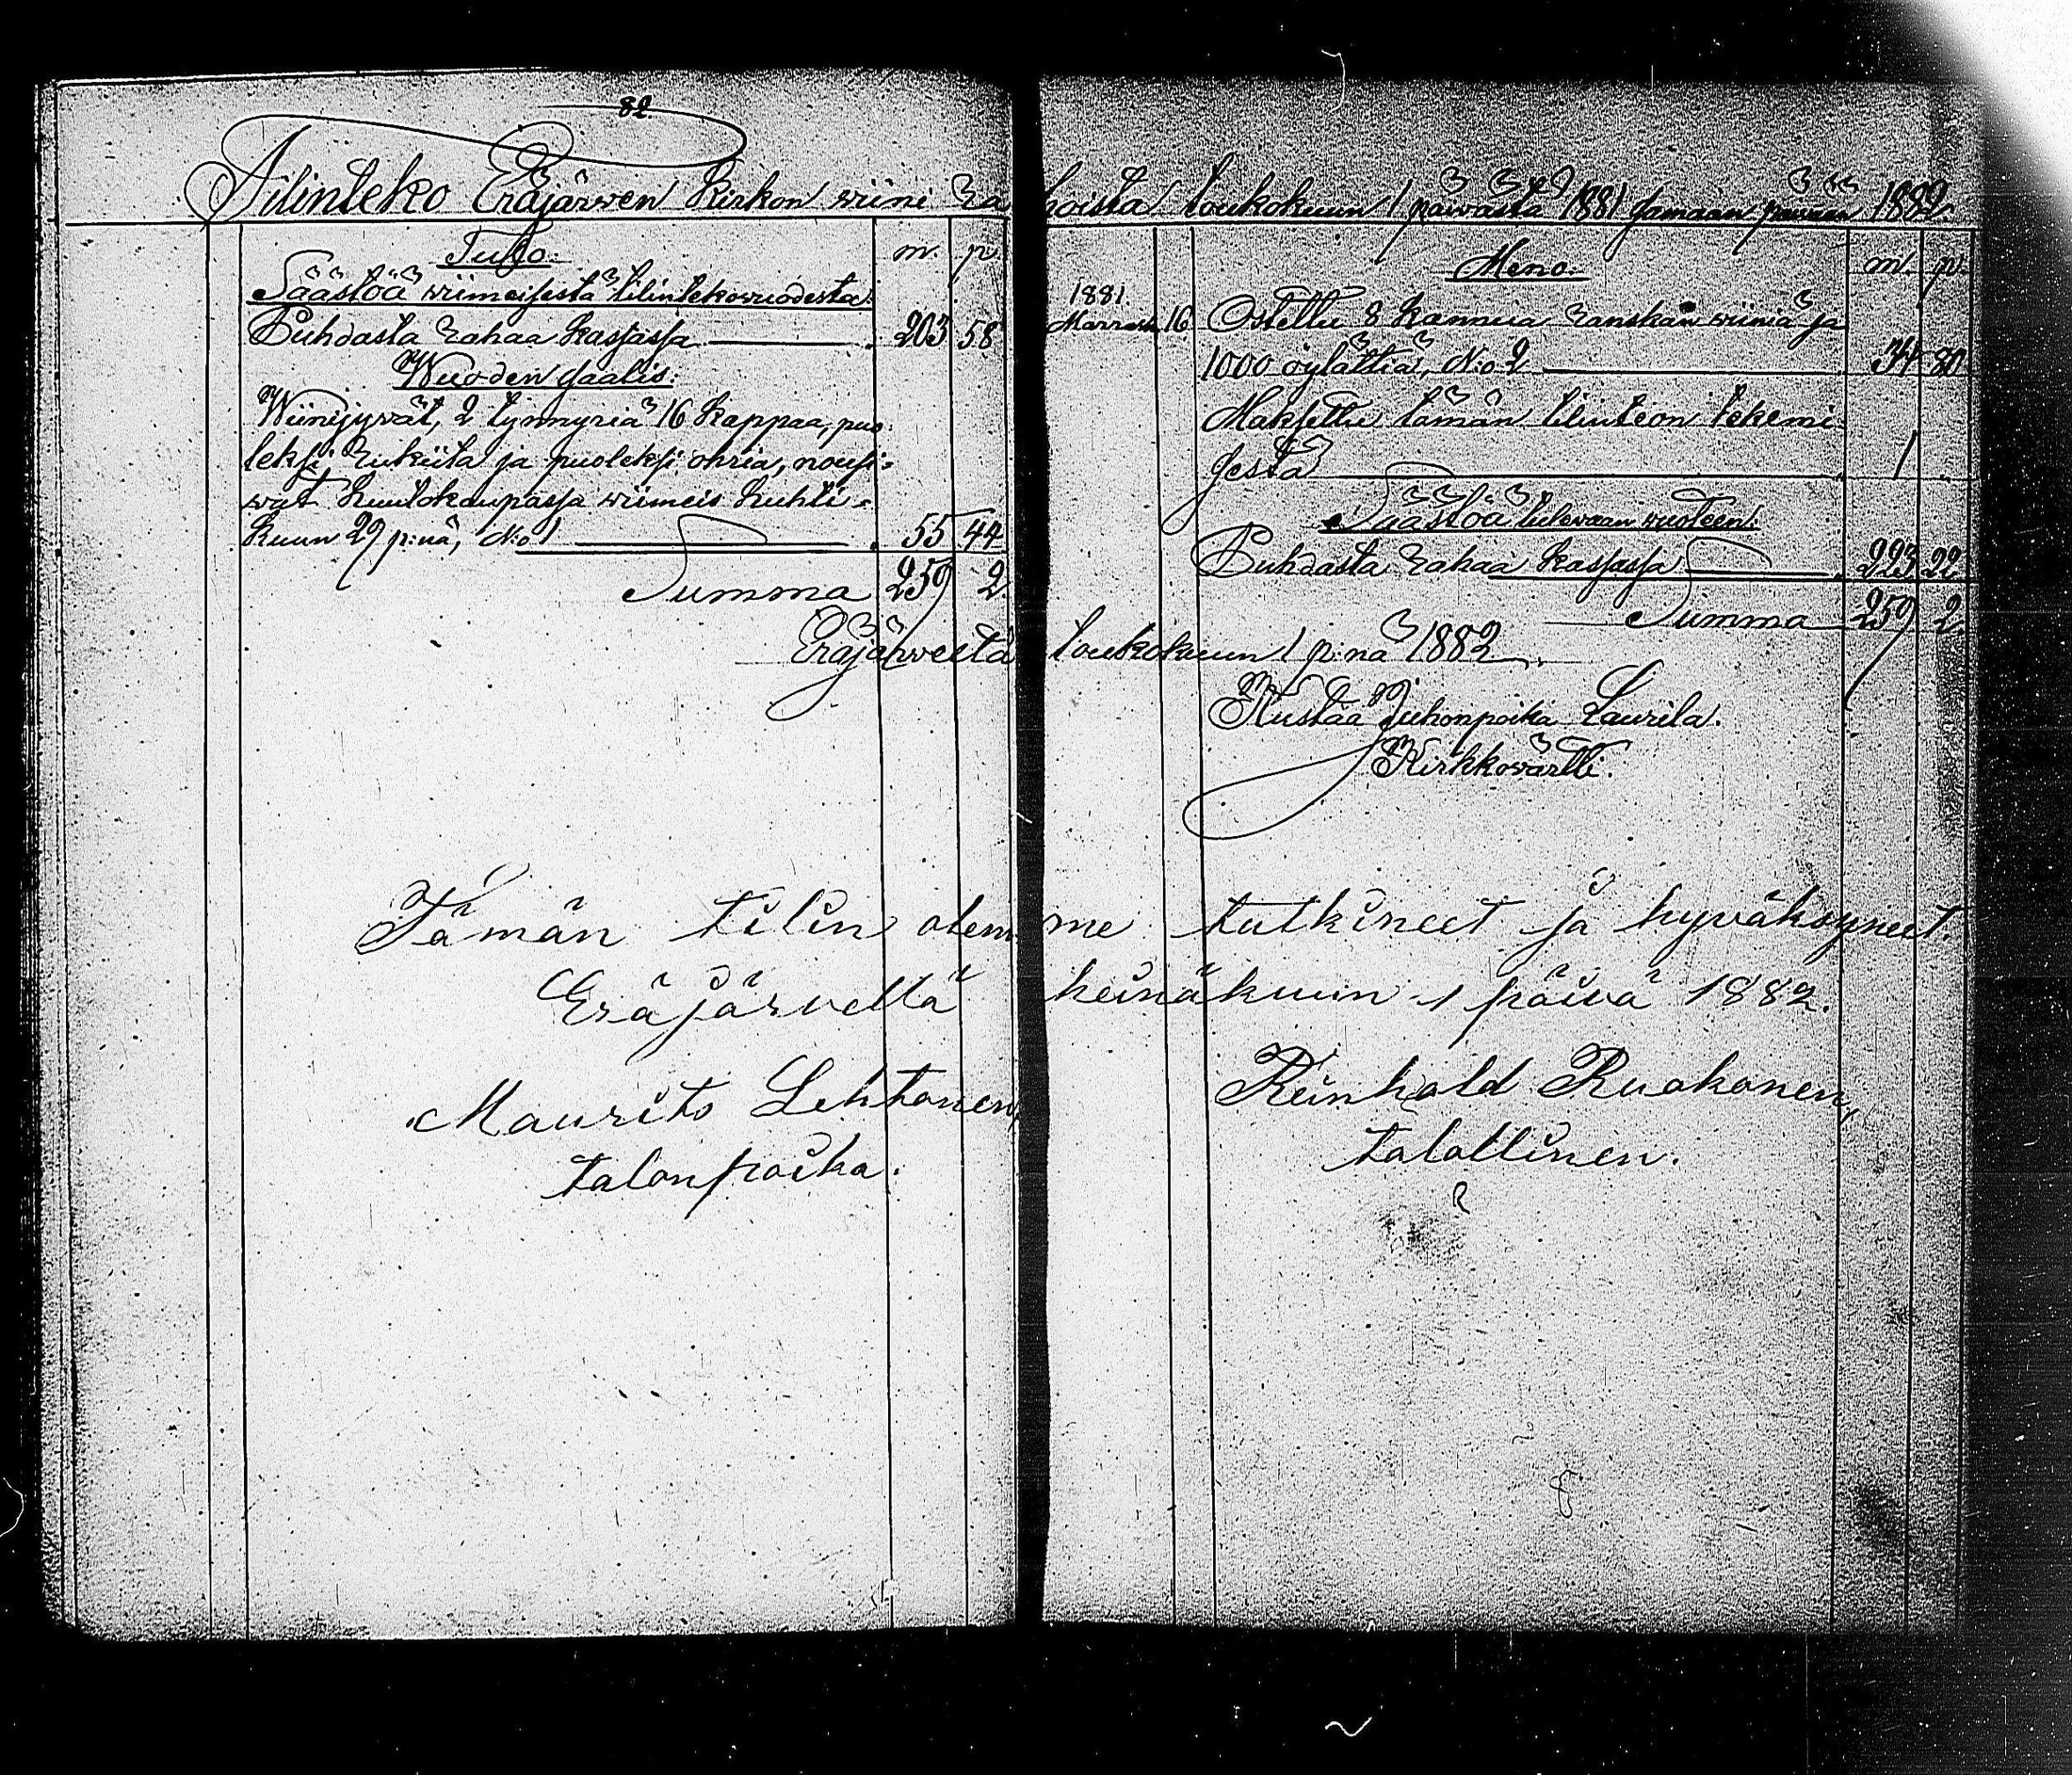 82.
Tilinteko Eräjärwen Kirkon wiini rahoista toukokuun 1 päiwästä 1881 samaan päiwään 1882.
Tulo. m. p.
Säästöä wiimeisestä tilintekowuodesta:
Puhdasta rahaa kassassa 203 58
Wuoden saalis:
Wiinijyvät, 2 tynnyriä 16 kappaa, puo-
leksi rukiita ja puoleksi ohria, nousi-
wat huutokaupassa wiimeis huhti-
kuun 29 p:nä, N:o 1 55 44
Summa 259 2
Meno. m. p.
1881
Marrask. 16 Ostettu 8 kannua ranskan wiiniä ja
1000 öylättiä, N:o 2 34 80
Maksettu tämän tilinteon tekemi-
sestä 1
Säästöä tulewaan wuoteen:
Puhdasta rahaa kassassa 223 22
Summa 259 2.
Eräjärweltä toukokuun 1 p:nä 1882
Kustaa Juhonpoika Laurila.
Kirkkovärtti.
Tämän tilin olemme tutkineet ja hyväksyneet.
Eräjärveltä heinäkuun 1 päivä 1882.
Maurits Lehtonen,
talonpoika.
Reinhold Ruokonen,
talollinen.